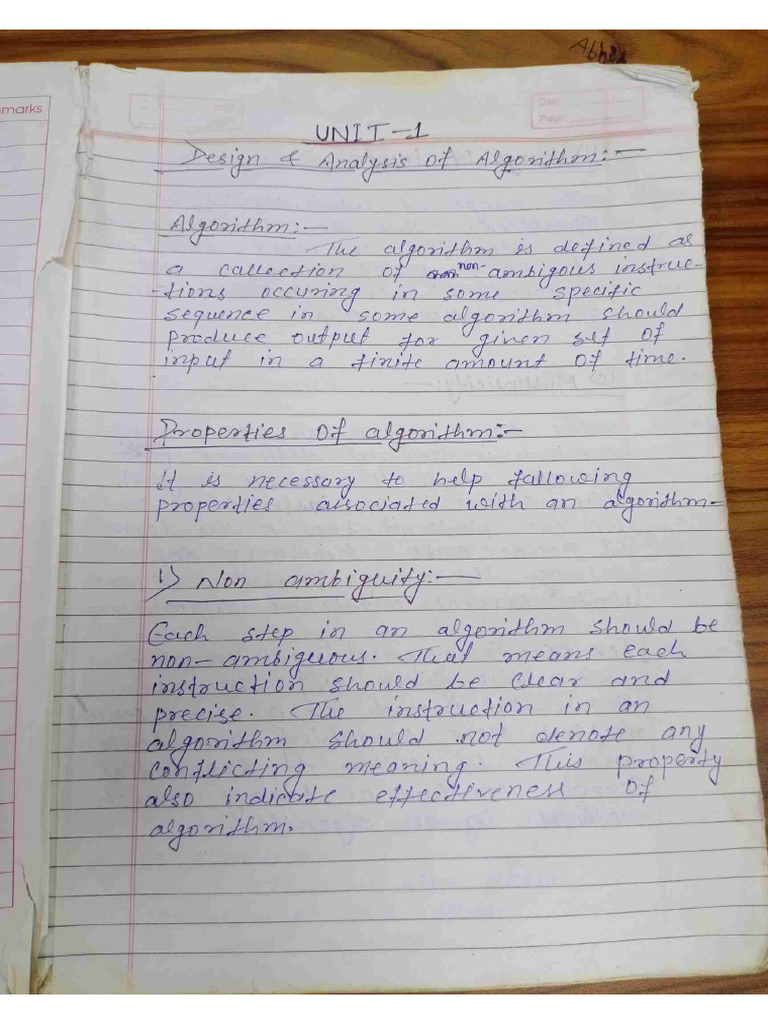 Abhi
marks
Date
Page
UNIT-1
Design & Analysis of Algorithm:-
Algorithm:-
The algorithm is defined as
a collection of non-ambigous instruc-
-tions occuring in some specific
sequence in some algorithm should
produce output for given set of
input in a finite amount of time.
Properties of algorithm:-
It is necessary to help fallowing
properties associated with an algorithm-
1) Non ambiguity:-
Each step in an algorithm should be
non-ambiguous. That means each
instruction should be clear and
precise. The instruction in an
algorithm should not denote any
conflicting meaning. This property
also indicate effectiveness of
algorithm.